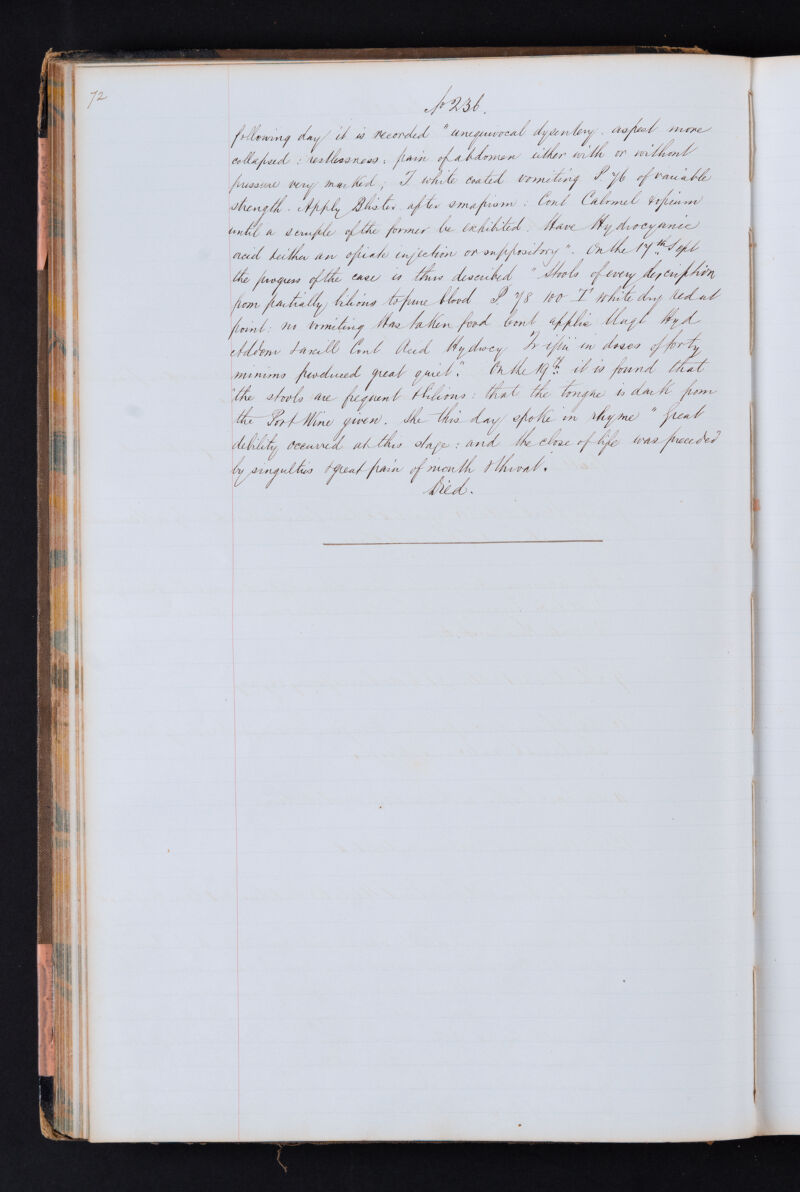 72
No 236.
following day it is recorded "unequivocal dysentery. aspect more
collapsed : restlessness : pain of abdomen either with or without
pressure very marked ; T white coated vomiting P 76 of variable
strength. Apply Blister after sinapism : Cont Calomel & opium
until a scruple of the former be exhibited. Have Hydrocyanic
acid & either an opiate injection or suppository". On the 17th Sept
the progress of the case is thus described "Stools of every description
from partially bilious to pure blood P 78 100 T white dry red at
point : no vomiting Has taken food Cont applic Ungt Hyd
Abdom & axill Cont Acid Hydrocy in doses of forty
minims produced great quiet". On the 19th it is found that
"the stools are frequent & bilious : that the tongue is dark from
the Port Wine given. She this day spoke in rhyme" Great
debility occurred at this stage : and the close of life was preceded
by singultus & great pain of mouth & throat.
Died.